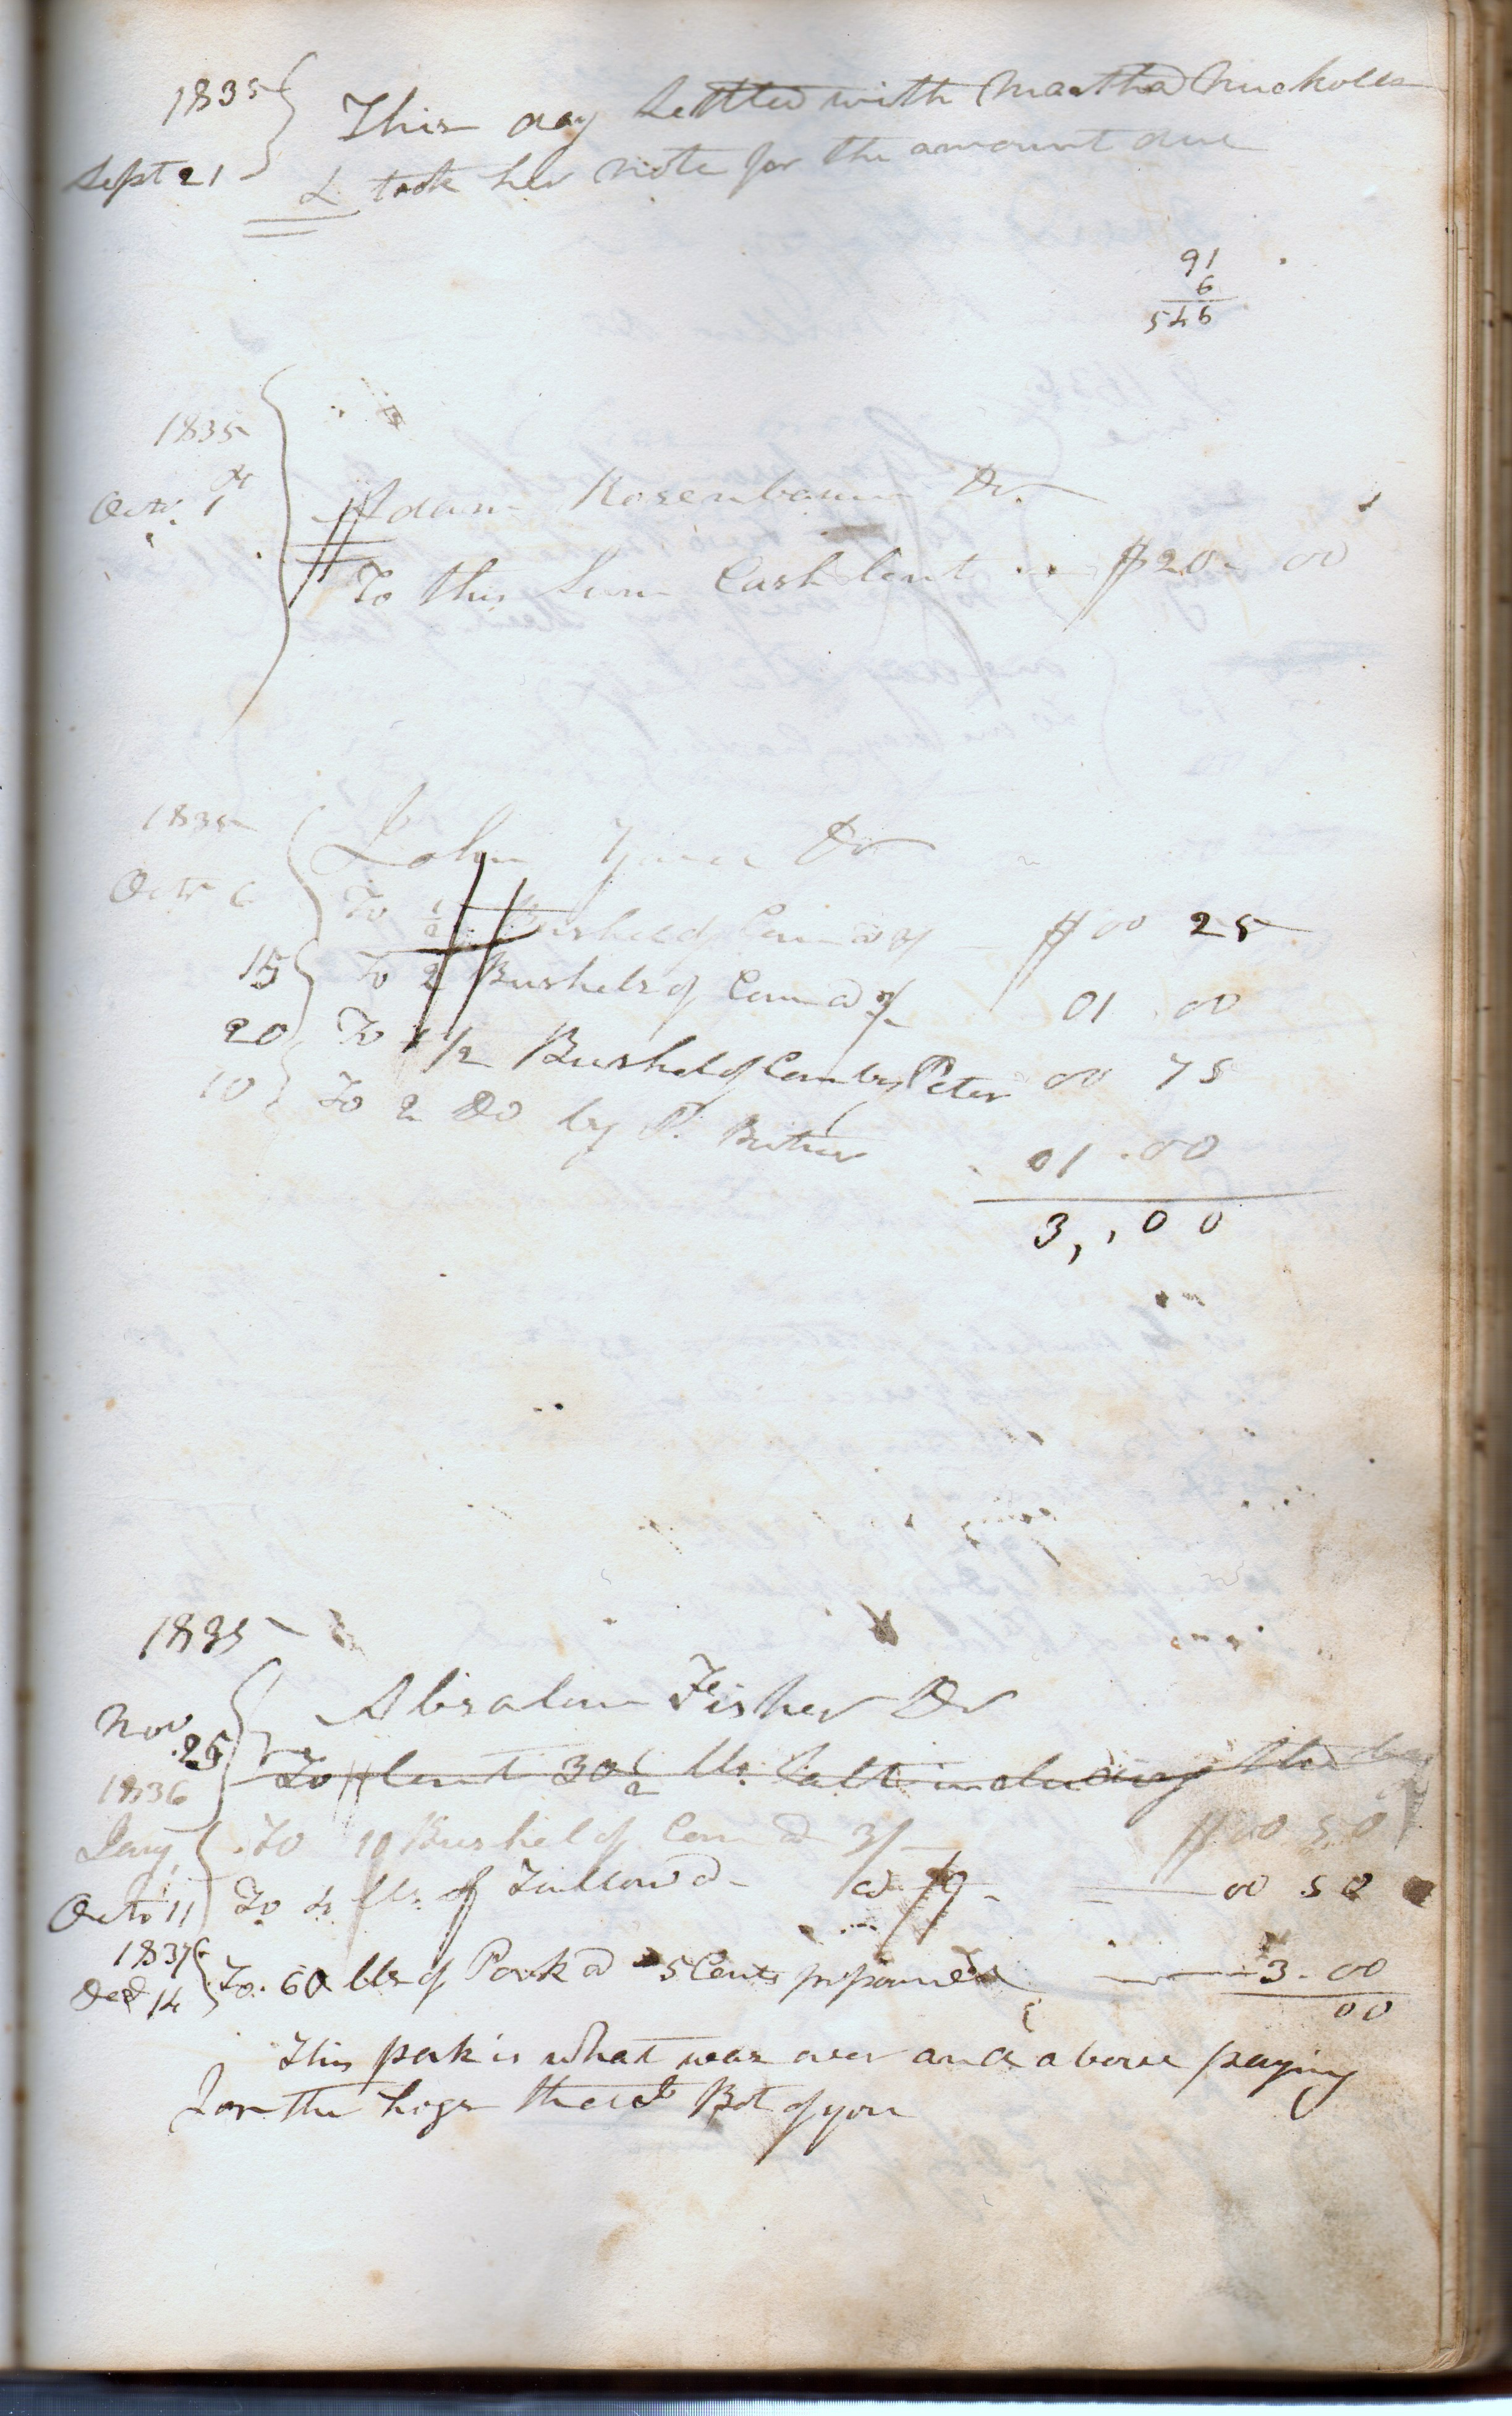 1835 This day Settled with Martha Nuckolls
Sept 21 & took her note for the amount due
91
6
546
1835
Octr. 1st Adam Rosenbaum Dr.
To this Sum Cash lent $20. 00
1835 John Dr
Octr 6 To 1/2 Bushel of Corn @ 3/ $00 25
15 To 2 Bushels of Corn @ 3/ 01 00
20 To 1 1/2 Bushel of Corn by Peter 00 75
10 To 2 Do by P. 01.00
3,,00
1835
Nov. 25 Abraham Fisher Dr
To lent 30 1/2 lbs. Salt including the
1836
Jany To 1 Bushel of Corn @ 3/ $00 50
Octr 11 To 4 lbs. of Tallow @ 00 50
1837
Decd 14 To. 60 lbs of Pork @ 5 Cents pr pound 3.00
00
This pork is what was over and above paying
for the hogs Bot of you